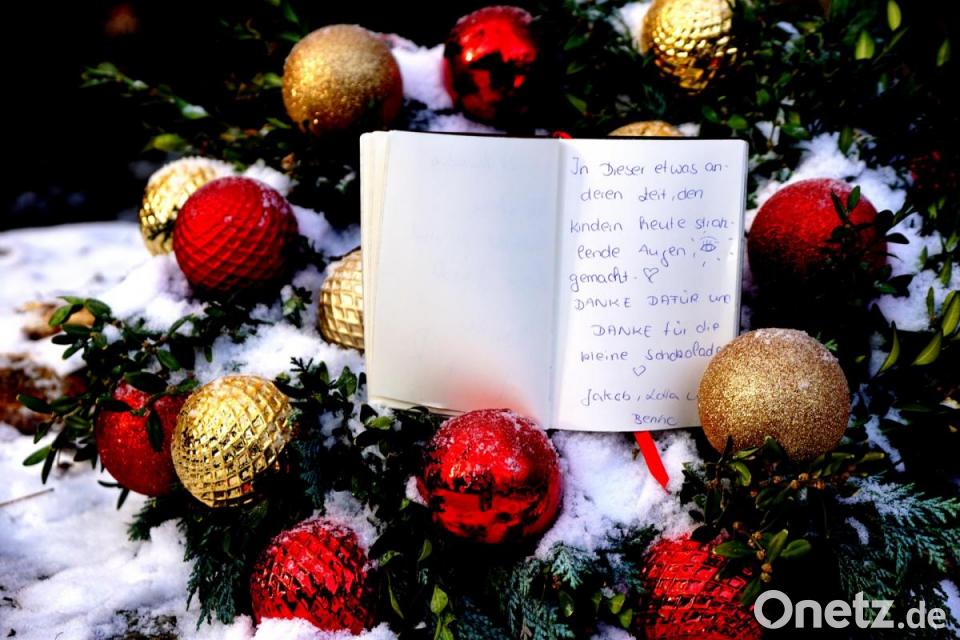 In Dieser etwas an-
deren Zeit, den
kindern heute strah-
lende Augen,
gemacht. ♡
DANKE DAFÜR und
DANKE für die
kleine Schokolade
♡
Jakob, Lolla
Benne
Onetz.de